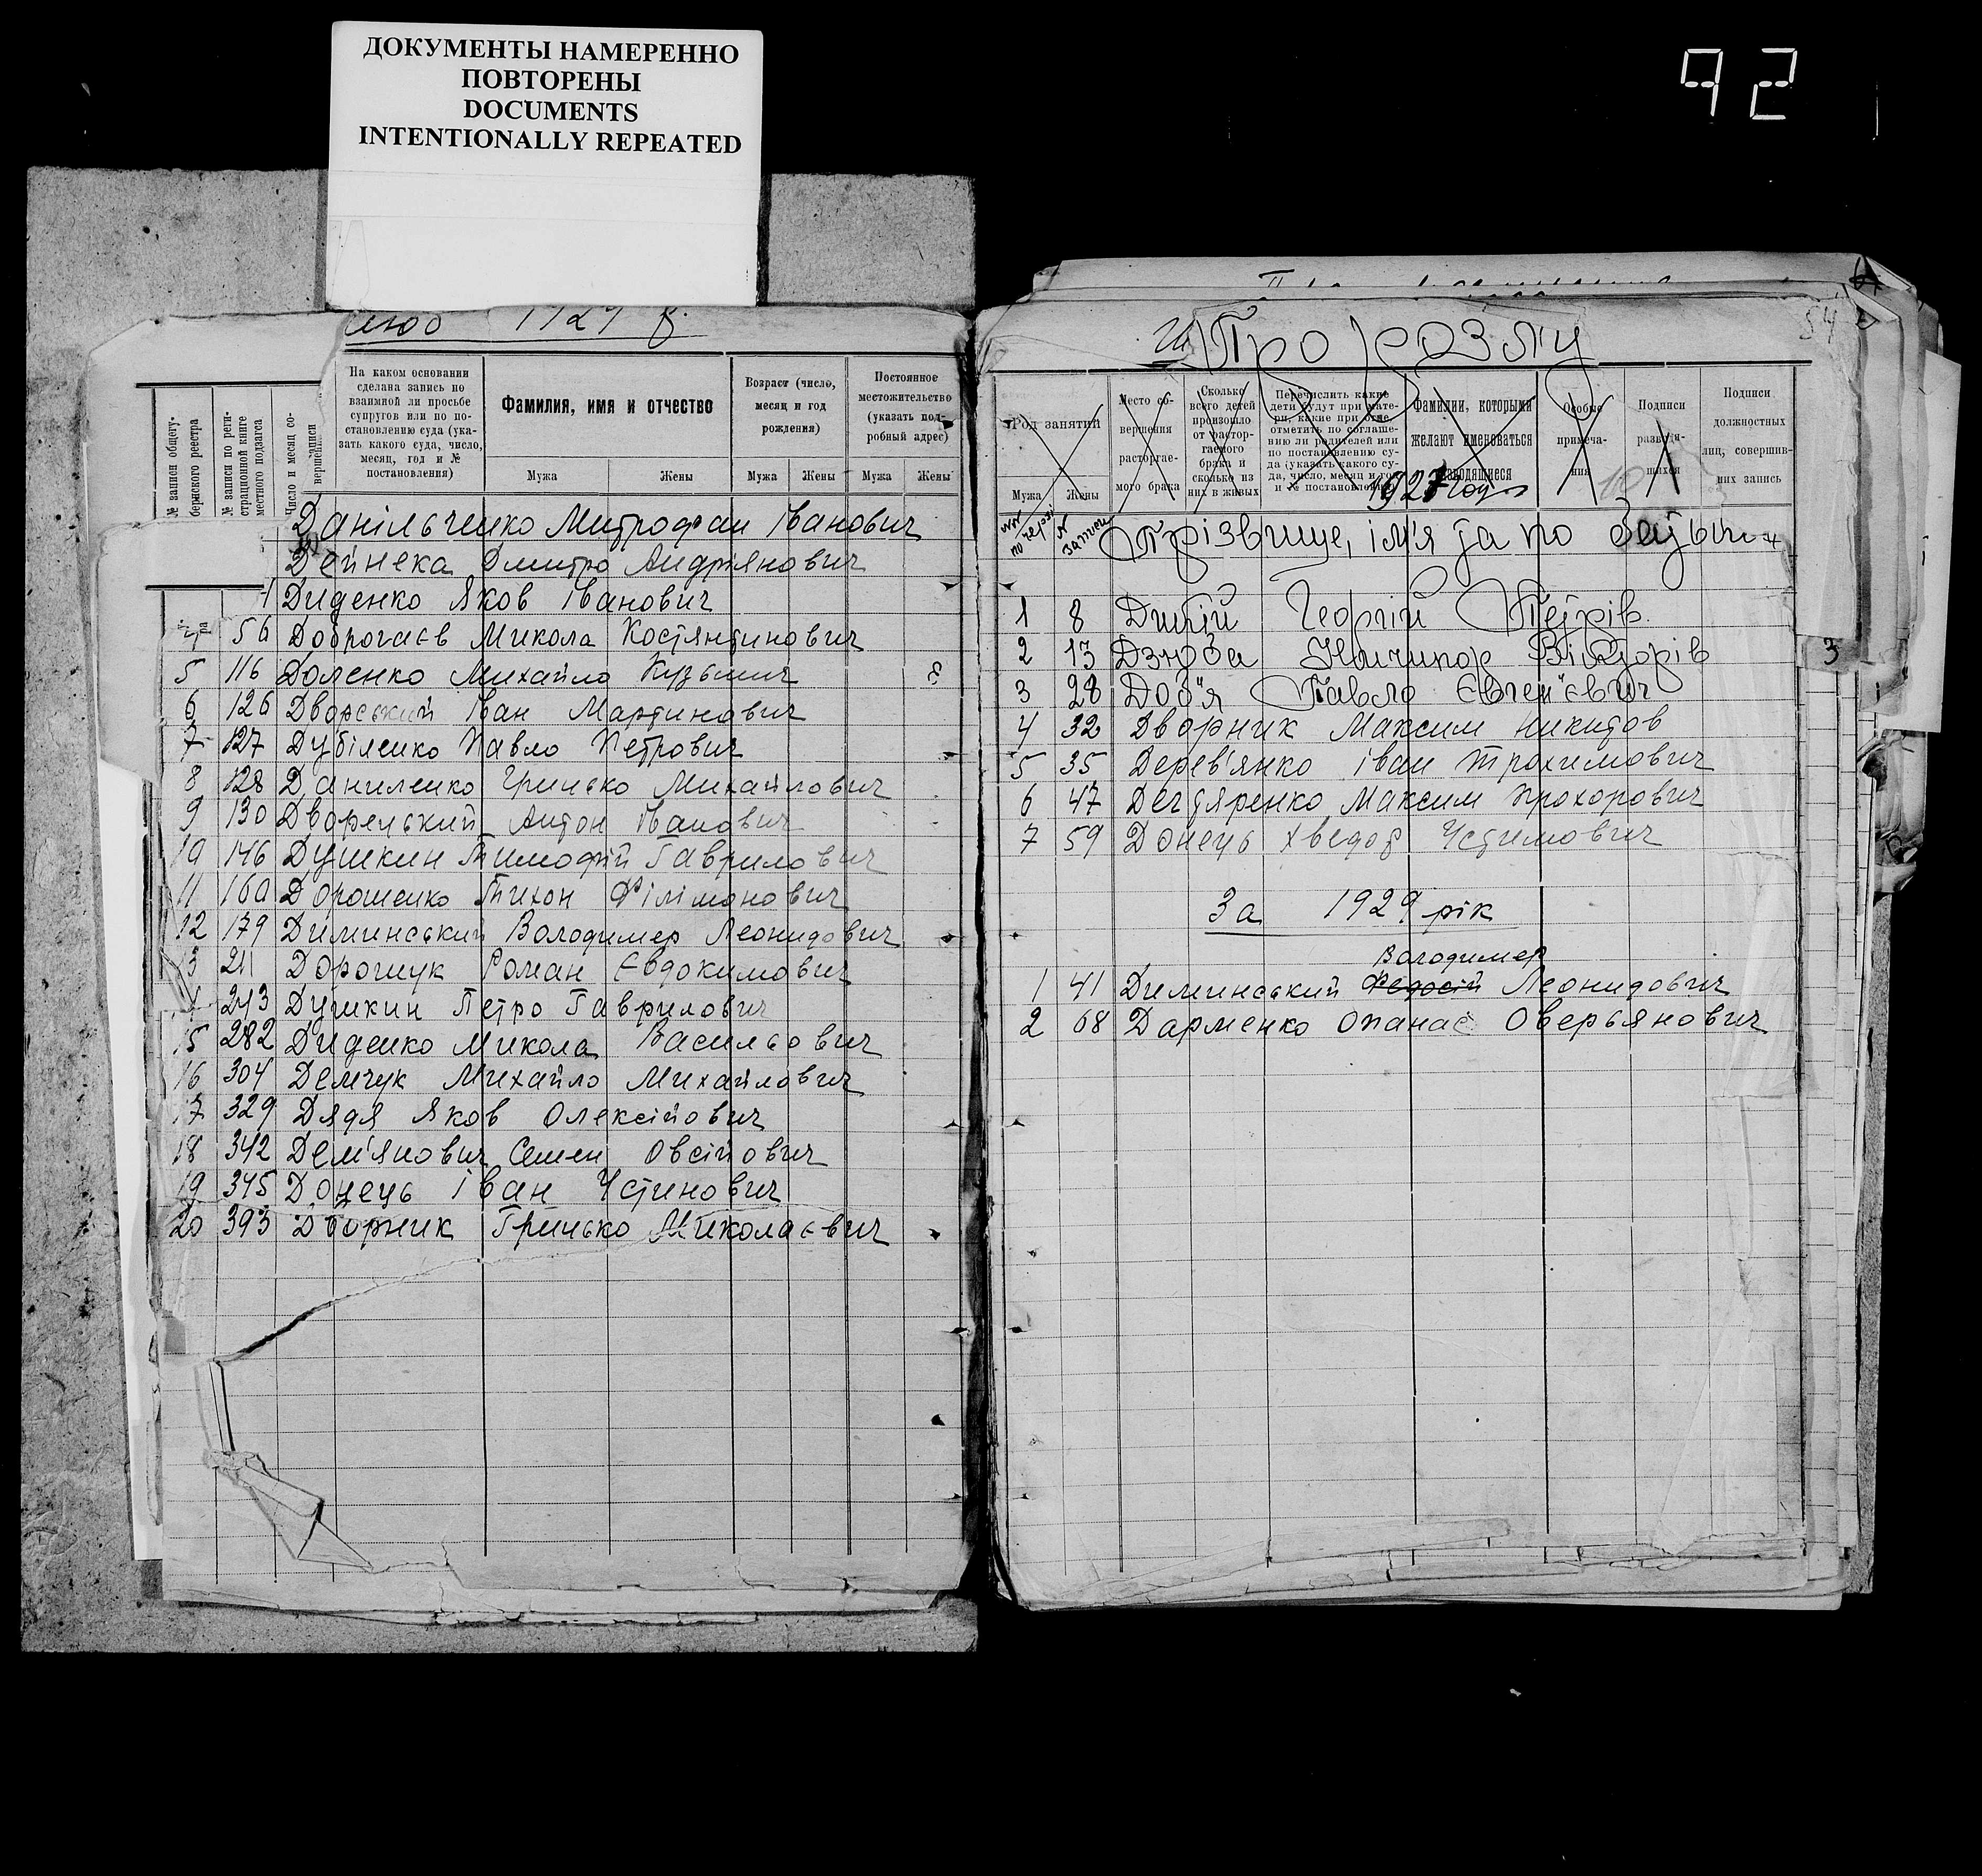 ДОКУМЕНТЫ НАМЕРЕННО
ПОВТОРЕНЫ
DOCUMENTS
INTENTIONALLY REPEATED
92
№ записи общегу-
бернского реестра
№ записи по реги-
страционной книге
местного подзагса
Число и месяц со-
вершения записи
На каком основании
сделана запись по
взаимной ли просьбе
супругов или по по-
становлению суда (ука-
зать какого суда, число,
месяц, год и №
постановления)
Фамилия, имя и отчество
Мужа Жены
Возраст (число,
месяц и год
рождения)
Мужа Жены
Постоянное
местожительство
(указать под-
робный адрес)
Мужа Жены
Данільченко Митрофан Іванович
Дейнека Дмитро Андріянович
Диденко Яков Іванович
56 Доброгаєв Микола Костянтинович
5 116 Доленко Михайло Кузьмич
6 126 Дворський Іван Мартинович
7 127 Дубіленко Павло Петрович
8 128 Даниленко Грицько Михайлович
9 130 Дворецький Антон Іванович
10 146 Душкин Тимофій Гаврилович
11 160 Дорошенко Тихон Филимонович
12 179 Диминський Володимер Леонидович
13 211 Дорошук Роман Євдокимович
243 Душкин Петро Гаврилович
15 282 Диденко Микола Васильович
16 304 Демчук Михайло Михайлович
17 329 Дядя Яков Олексійович
18 342 Дем'янович Семен Овсійович
19 345 Донець Іван Устинович
20 393 Дворник Грицько Миколаєвич
54
Про розлу
Род занятий
Мужа Жены
Место со-
вершения
расторгае-
мого брака
Сколько
всего детей
произошло
от растор-
гаемого
брака и
сколько из
них в живых
Перечислить какие
дети будут при мате-
ри, какие при отце,
отметить по соглаше-
нию ли родителей или
по постановлению су-
да (указать какого су-
да, число, месяц и год
и № постановления)
Фамилии, которыми
желают именоваться
разводящиеся
Особые
примеча-
ния
Подписи
разводя-
щихся
Подписи
должностных
лиц, совершив-
ших запись
1927 год
Прізвище, ім'я та по батьк
1 8 Дибій Георгій Петрів
2 13 Дзюба Ничипор Вікторів
3 28 Доб'я Павло Євген'євич
4 32 Дворник Максим Никитов
5 35 Дерев'янко Іван Трохимович
6 47 Дегтяренко Максим Прохорович
7 59 Донець Хведот Устимович
3
За 1929 рік
Володимер
1 41 Диминський Федосій Леонидович
2 68 Дарменко Опанас Оверьянович